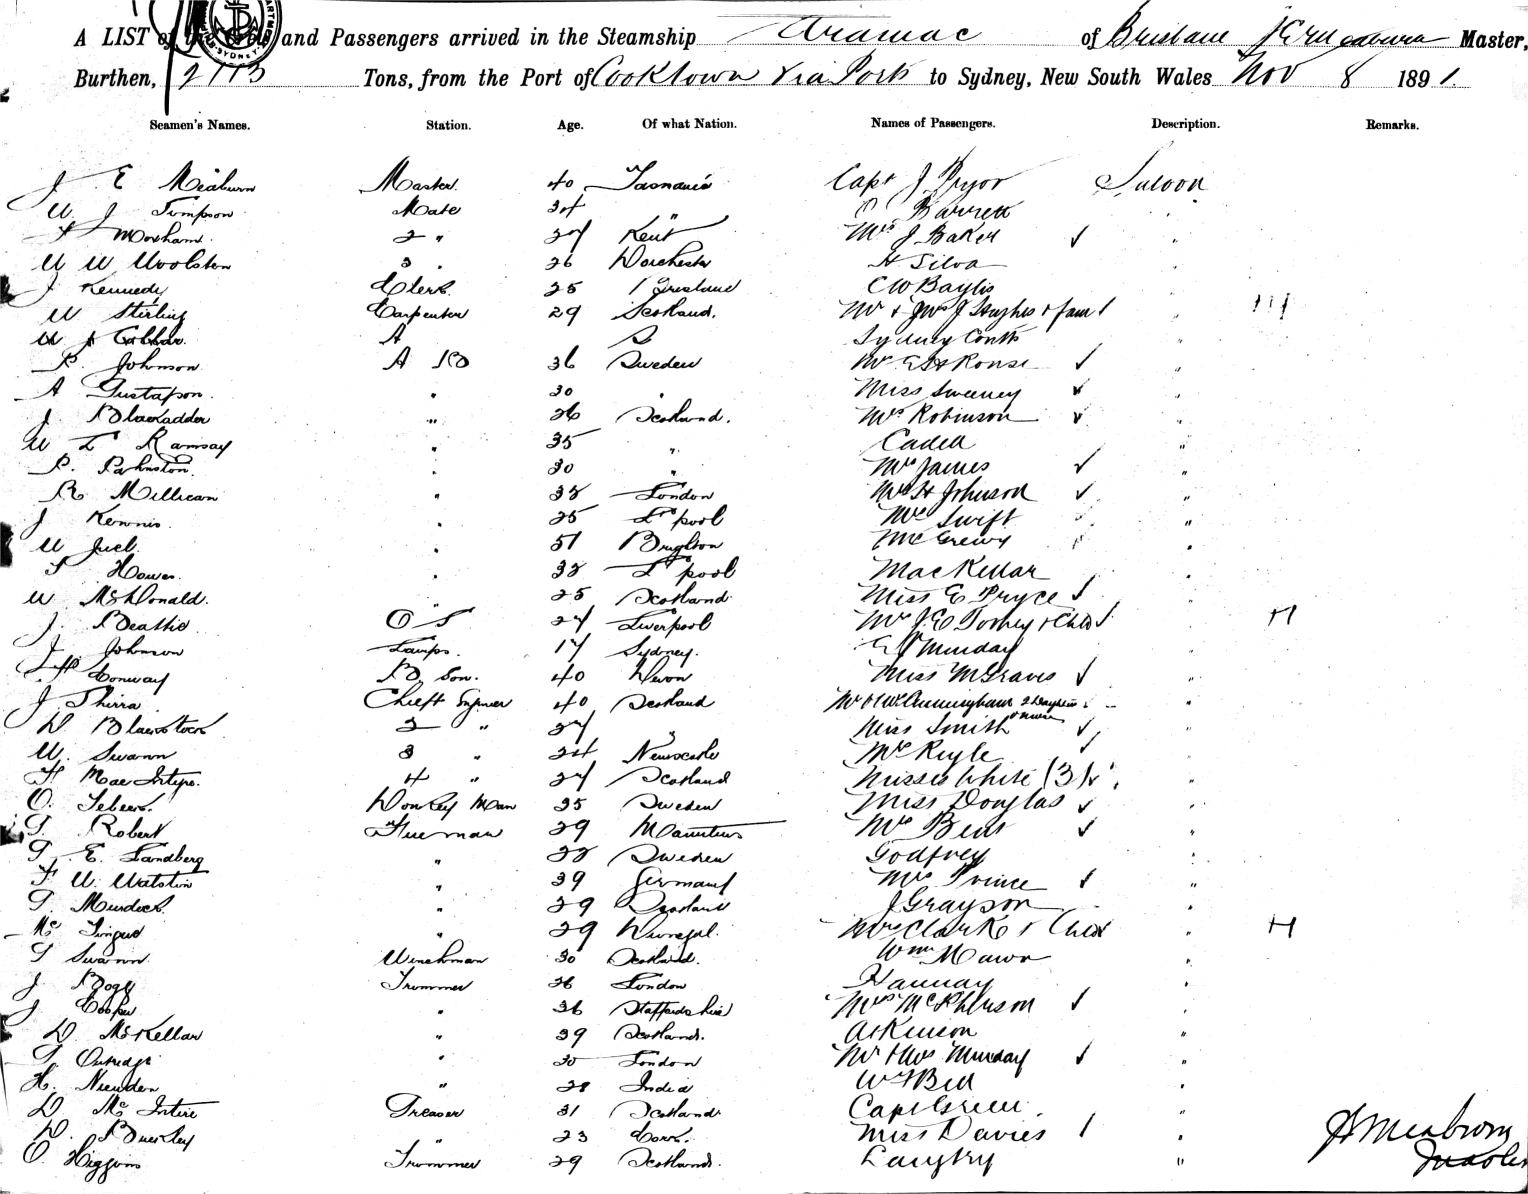 A LIST of the Crew and Passengers arrived in the Steamship Aramac of Brisbane J E Meaburn Master,
Burthen, 2113 Tons, from the Port of Cooktown via Ports to Sydney, New South Wales Nov 8 1891.
Seamen's Names. Station. Age. Of what Nation. Names of Passengers. Description. Remarks.
J E Meaburn Master. 40 Tasmania Capt J Pryor Saloon
W. J Simpson Mate 34 " Barrett "
Moxham 2 " 27 Kent Mrs J Baker "
W W Woolsten 3 " 26 Dorchester H Silva "
J Kennedy Clerk 25 Brisbane C W Baylis "
W Stirling Carpenter 29 Scotland. Mr & Mrs J Hughes & fam "
W A S Sydney Conts "
P. Johnson A B 36 Sweden Mr E H Rouse "
A Gustafson. " 30 " Miss Sweeney "
J. Blackadder " 26 Scotland. Mrs Robinson "
W L Ramsay " 35 " Cadell "
P. Johnston. " 30 " Mrs James "
R Millican " 33 London Mrs H Johnson "
J Kennis. " 25 L'pool Mrs Swift "
W Juel. " 51 Brighton McGrewy "
Howes. " 33 L'pool MacKellar "
W McDonald. " 25 Scotland Miss E Pryce "
J. Beattie O S 27 Liverpool Mrs J.E. Toshey & Child " H
J. Johnson Lamps. 17 Sydney. E Munday "
Conway B Son. 40 Devon Miss McGraves "
J Shirra Chief Engineer 40 Scotland Mr & Mrs Cunningham 2 Daughters & nurse "
D Blacostock 2 " 27 " Miss Smith "
W. Swann 3 " 24 Newcastle Mrs Ryle "
H MacIntyre. 4 " 27 Scotland Misses White (3) "
O. Donkey Man 35 Sweden Miss Douglas "
T. Robert Fireman 29 Mauritius Mrs Bent "
T. E. Sandberg " 33 Sweden Godfrey "
F W. Watstin " 39 Germany Mrs Prince "
T. Murdoch " 29 Scotland J Grayson "
Mc " 29 Donegal. Mrs Clarke & Child " H
T Swann Winchman 30 Scotland. Wm Mawn "
J. Bogg Trimmer 26 London Hannay "
J Cooper " 36 Staffordshire Mrs McPherson "
D. McKellar " 39 Scotland. Atkinson "
T. Outredge " 30 London Mr & Mrs Munday "
H. Niewden " 28 India W F Bell "
D. McIntire Greaser 31 Scotland Capt Green. "
D. Buckley " 23 Cork. Miss Davies "
O Higgins Trimmer 29 Scotland. Langtry "
J E Meaburn
Master